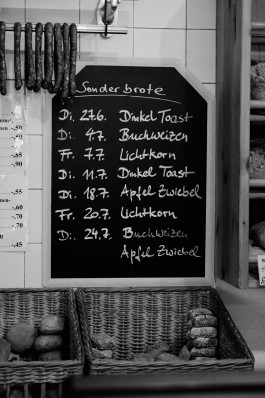 Sonderbrote
Di. 27.6. Dinkel Toast
Di. 4.7. Buchweizen
Fr. 7.7. Lichtkorn
Di. 11.7. Dinkel Toast
Di. 18.7. Apfel Zwiebel
Fr. 20.7. Lichtkorn
Di. 24.7. Buchweizen
Apfel Zwiebel